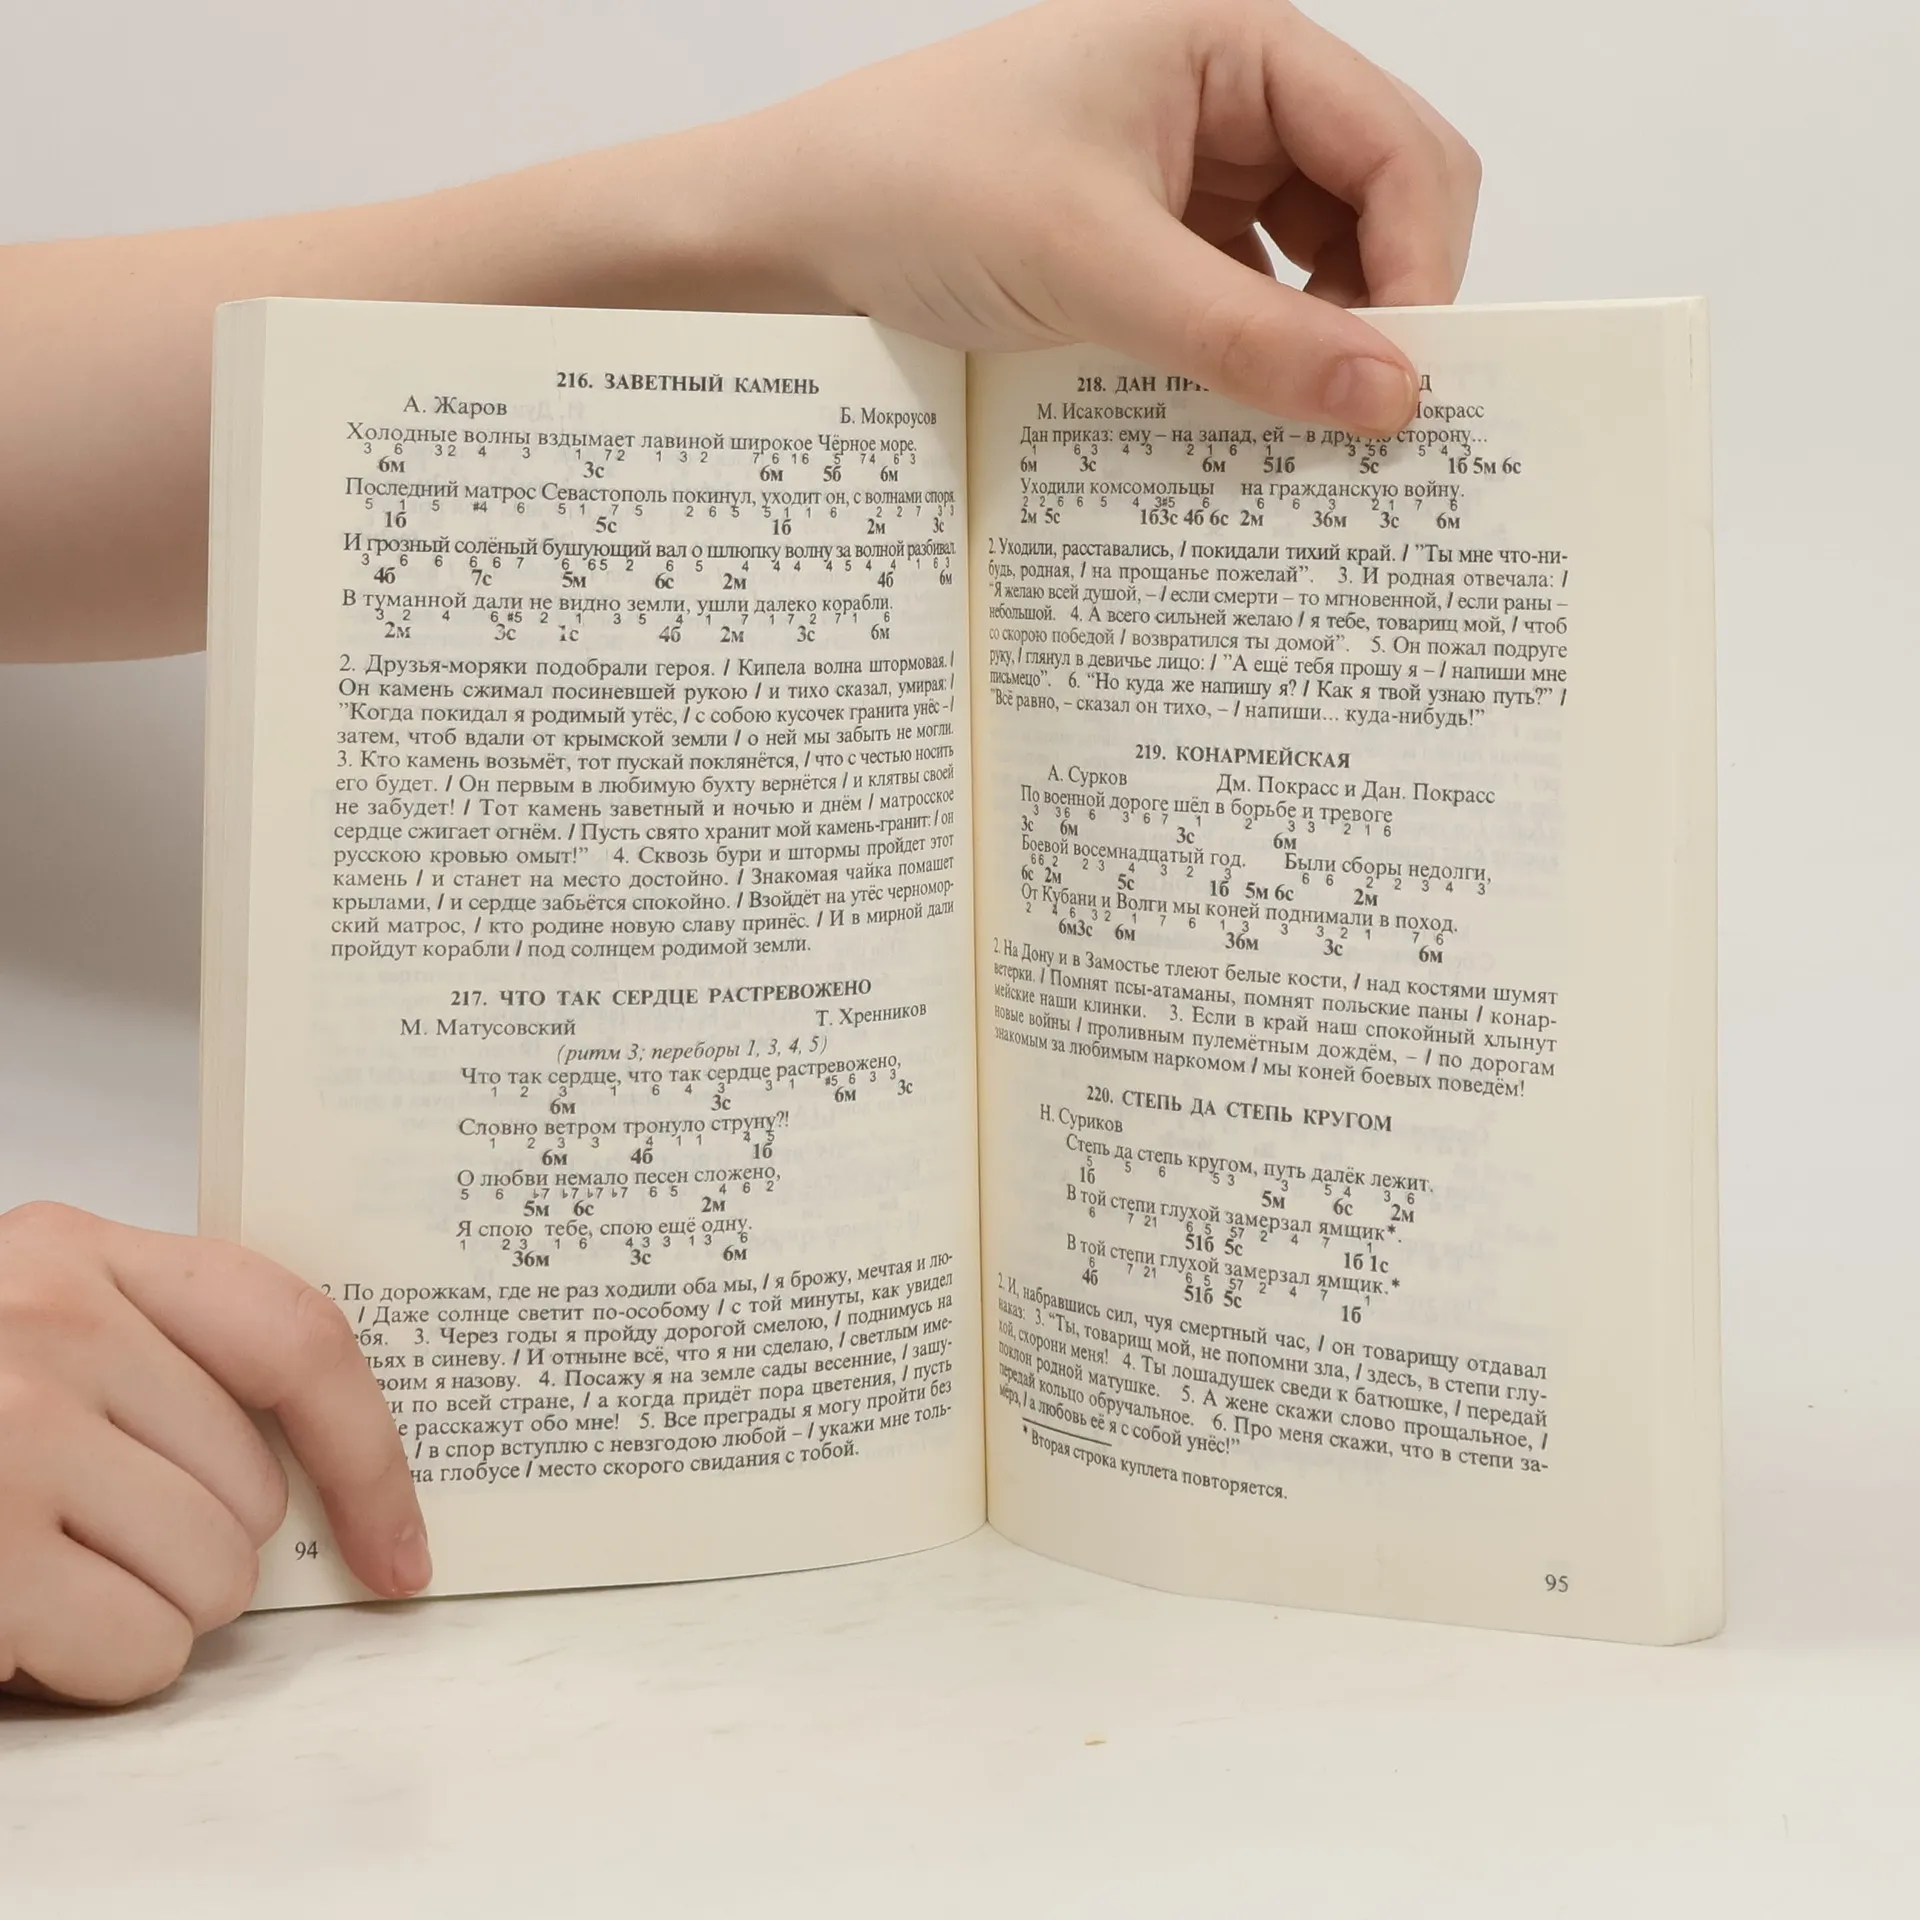 216. ЗАВЕТНЫЙ КАМЕНЬ
А. Жаров
Б. Мокроусов
Холодные волны вздымает лавиной широкое Чёрное море.
3 6 3 2 4 3 1 7 2 1 3 2 7 6 1 6 5 7 4 6 3
6м 3с 6м 5б 6м
Последний матрос Севастополь покинул, уходит он, с волнами споря.
5 1 5 #4 6 5 1 7 5 2 6 5 5 1 1 6 2 2 7 3 3
1б 5с 1б 2м 3с
И грозный солёный бушующий вал о шлюпку волну за волной разбивал.
3 6 6 6 6 7 6 6 5 2 6 5 4 4 4 4 5 4 4 1 6 3
4б 7с 5м 6с 2м 4б 6м
В туманной дали не видно земли, ушли далеко корабли.
3 2 4 6 #5 2 1 3 5 4 1 7 1 7 2 7 1 6
2м 3с 1с 4б 2м 3с 6м
2. Друзья-моряки подобрали героя. / Кипела волна штормовая. /
Он камень сжимал посиневшей рукою / и тихо сказал, умирая: /
"Когда покидал я родимый утёс, / с собою кусочек гранита унёс - /
затем, чтоб вдали от крымской земли / о ней мы забыть не могли.
3. Кто камень возьмёт, тот пускай поклянётся, / что с честью носить
его будет. / Он первым в любимую бухту вернётся / и клятвы своей
не забудет! / Тот камень заветный и ночью и днём / матросское
сердце сжигает огнём. / Пусть свято хранит мой камень-гранит: / он
русскою кровью омыт!" 4. Сквозь бури и штормы пройдет этот
камень / и станет на место достойно. / Знакомая чайка помашет
крылами, / и сердце забьётся спокойно. / Взойдёт на утёс черномор-
ский матрос, / кто родине новую славу принёс. / И в мирной дали
пройдут корабли / под солнцем родимой земли.
217. ЧТО ТАК СЕРДЦЕ РАСТРЕВОЖЕНО
М. Матусовский
Т. Хренников
(ритм 3; переборы 1, 3, 4, 5)
Что так сердце, что так сердце растревожено,
1 2 3 1 6 4 3 3 1 #5 6 3 3
6м 3с 6м 3с
Словно ветром тронуло струну?!
1 2 3 3 4 1 1 4 5
6м 4б 1б
О любви немало песен сложено,
5 6 ♭7 ♭7 ♭7 ♭7 6 5 4 6 2
5м 6с 2м
Я спою тебе, спою ещё одну.
1 2 3 1 6 4 3 3 1 3 6
36м 3с 6м
2. По дорожкам, где не раз ходили оба мы, / я брожу, мечтая и лю-
/ Даже солнце светит по-особому / с той минуты, как увидел
ебя. 3. Через годы я пройду дорогой смелою, / поднимусь на
льях в синеву. / И отныне всё, что я ни сделаю, / светлым име-
воим я назову. 4. Посажу я на земле сады весенние, / зашу-
и по всей стране, / а когда придёт пора цветения, / пусть
е расскажут обо мне! 5. Все преграды я могу пройти без
, / в спор вступлю с невзгодою любой – / укажи мне толь-
на глобусе / место скорого свидания с тобой.
94
218. ДАН Д
М. Исаковский окрасс
Дан приказ: ему – на запад, ей – в другую сторону...
1 6 3 4 3 2 1 6 1 3 5 6 5 4 3
6м 3с 6м 51б 5с 1б 5м 6с
Уходили комсомольцы на гражданскую войну.
2 2 6 6 5 4 3#5 6 6 6 3 2 1 7 6
2м 5с 1б3с 4б 6с 2м 36м 3с 6м
2. Уходили, расставались, / покидали тихий край. / "Ты мне что-ни-
будь, родная, / на прощанье пожелай". 3. И родная отвечала: /
"Я желаю всей душой, – / если смерти – то мгновенной, / если раны –
небольшой. 4. А всего сильней желаю / я тебе, товарищ мой, / чтоб
со скорою победой / возвратился ты домой". 5. Он пожал подруге
руку, / глянул в девичье лицо: / "А ещё тебя прошу я – / напиши мне
письмецо". 6. "Но куда же напишу я? / Как я твой узнаю путь?" /
"Всё равно, – сказал он тихо, – / напиши... куда-нибудь!"
219. КОНАРМЕЙСКАЯ
А. Сурков
Дм. Покрасс и Дан. Покрасс
По военной дороге шёл в борьбе и тревоге
3 3 6 6 3 6 7 1 2 3 3 2 1 6
3с 6м 3с 6м
Боевой восемнадцатый год. Были сборы недолги,
6 6 2 2 3 4 3 2 3 6 6 2 2 3 4 3
6с 2м 5с 1б 5м 6с 2м
От Кубани и Волги мы коней поднимали в поход.
2 4 6 3 2 1 7 6 1 3 3 3 2 1 7 6
6м3с 6м 36м 3с 6м
2. На Дону и в Замостье тлеют белые кости, / над костями шумят
ветерки. / Помнят псы-атаманы, помнят польские паны / конар-
мейские наши клинки. 3. Если в край наш спокойный хлынут
новые войны / проливным пулемётным дождём, – / по дорогам
знакомым за любимым наркомом / мы коней боевых поведём!
220. СТЕПЬ ДА СТЕПЬ КРУГОМ
Н. Суриков
Степь да степь кругом, путь далёк лежит.
5 5 6 5 3 3 5 4 3 6
1б 5м 6с 2м
В той степи глухой замерзал ямщик*.
6 7 2 1 6 5 5 7 2 4 7 1
51б 5с 1б 1с
В той степи глухой замерзал ямщик.*
6 7 2 1 6 5 5 7 2 4 7 1
4б 51б 5с 1б
2. И, набравшись сил, чуя смертный час, / он товарищу отдавал
наказ: 3. "Ты, товарищ мой, не попомни зла, / здесь, в степи глу-
хой, схорони меня! 4. Ты лошадушек сведи к батюшке, / передай
поклон родной матушке. 5. А жене скажи слово прощальное, /
передай кольцо обручальное. 6. Про меня скажи, что в степи за-
мёрз, / а любовь её я с собой унёс!"
* Вторая строка куплета повторяется.
95